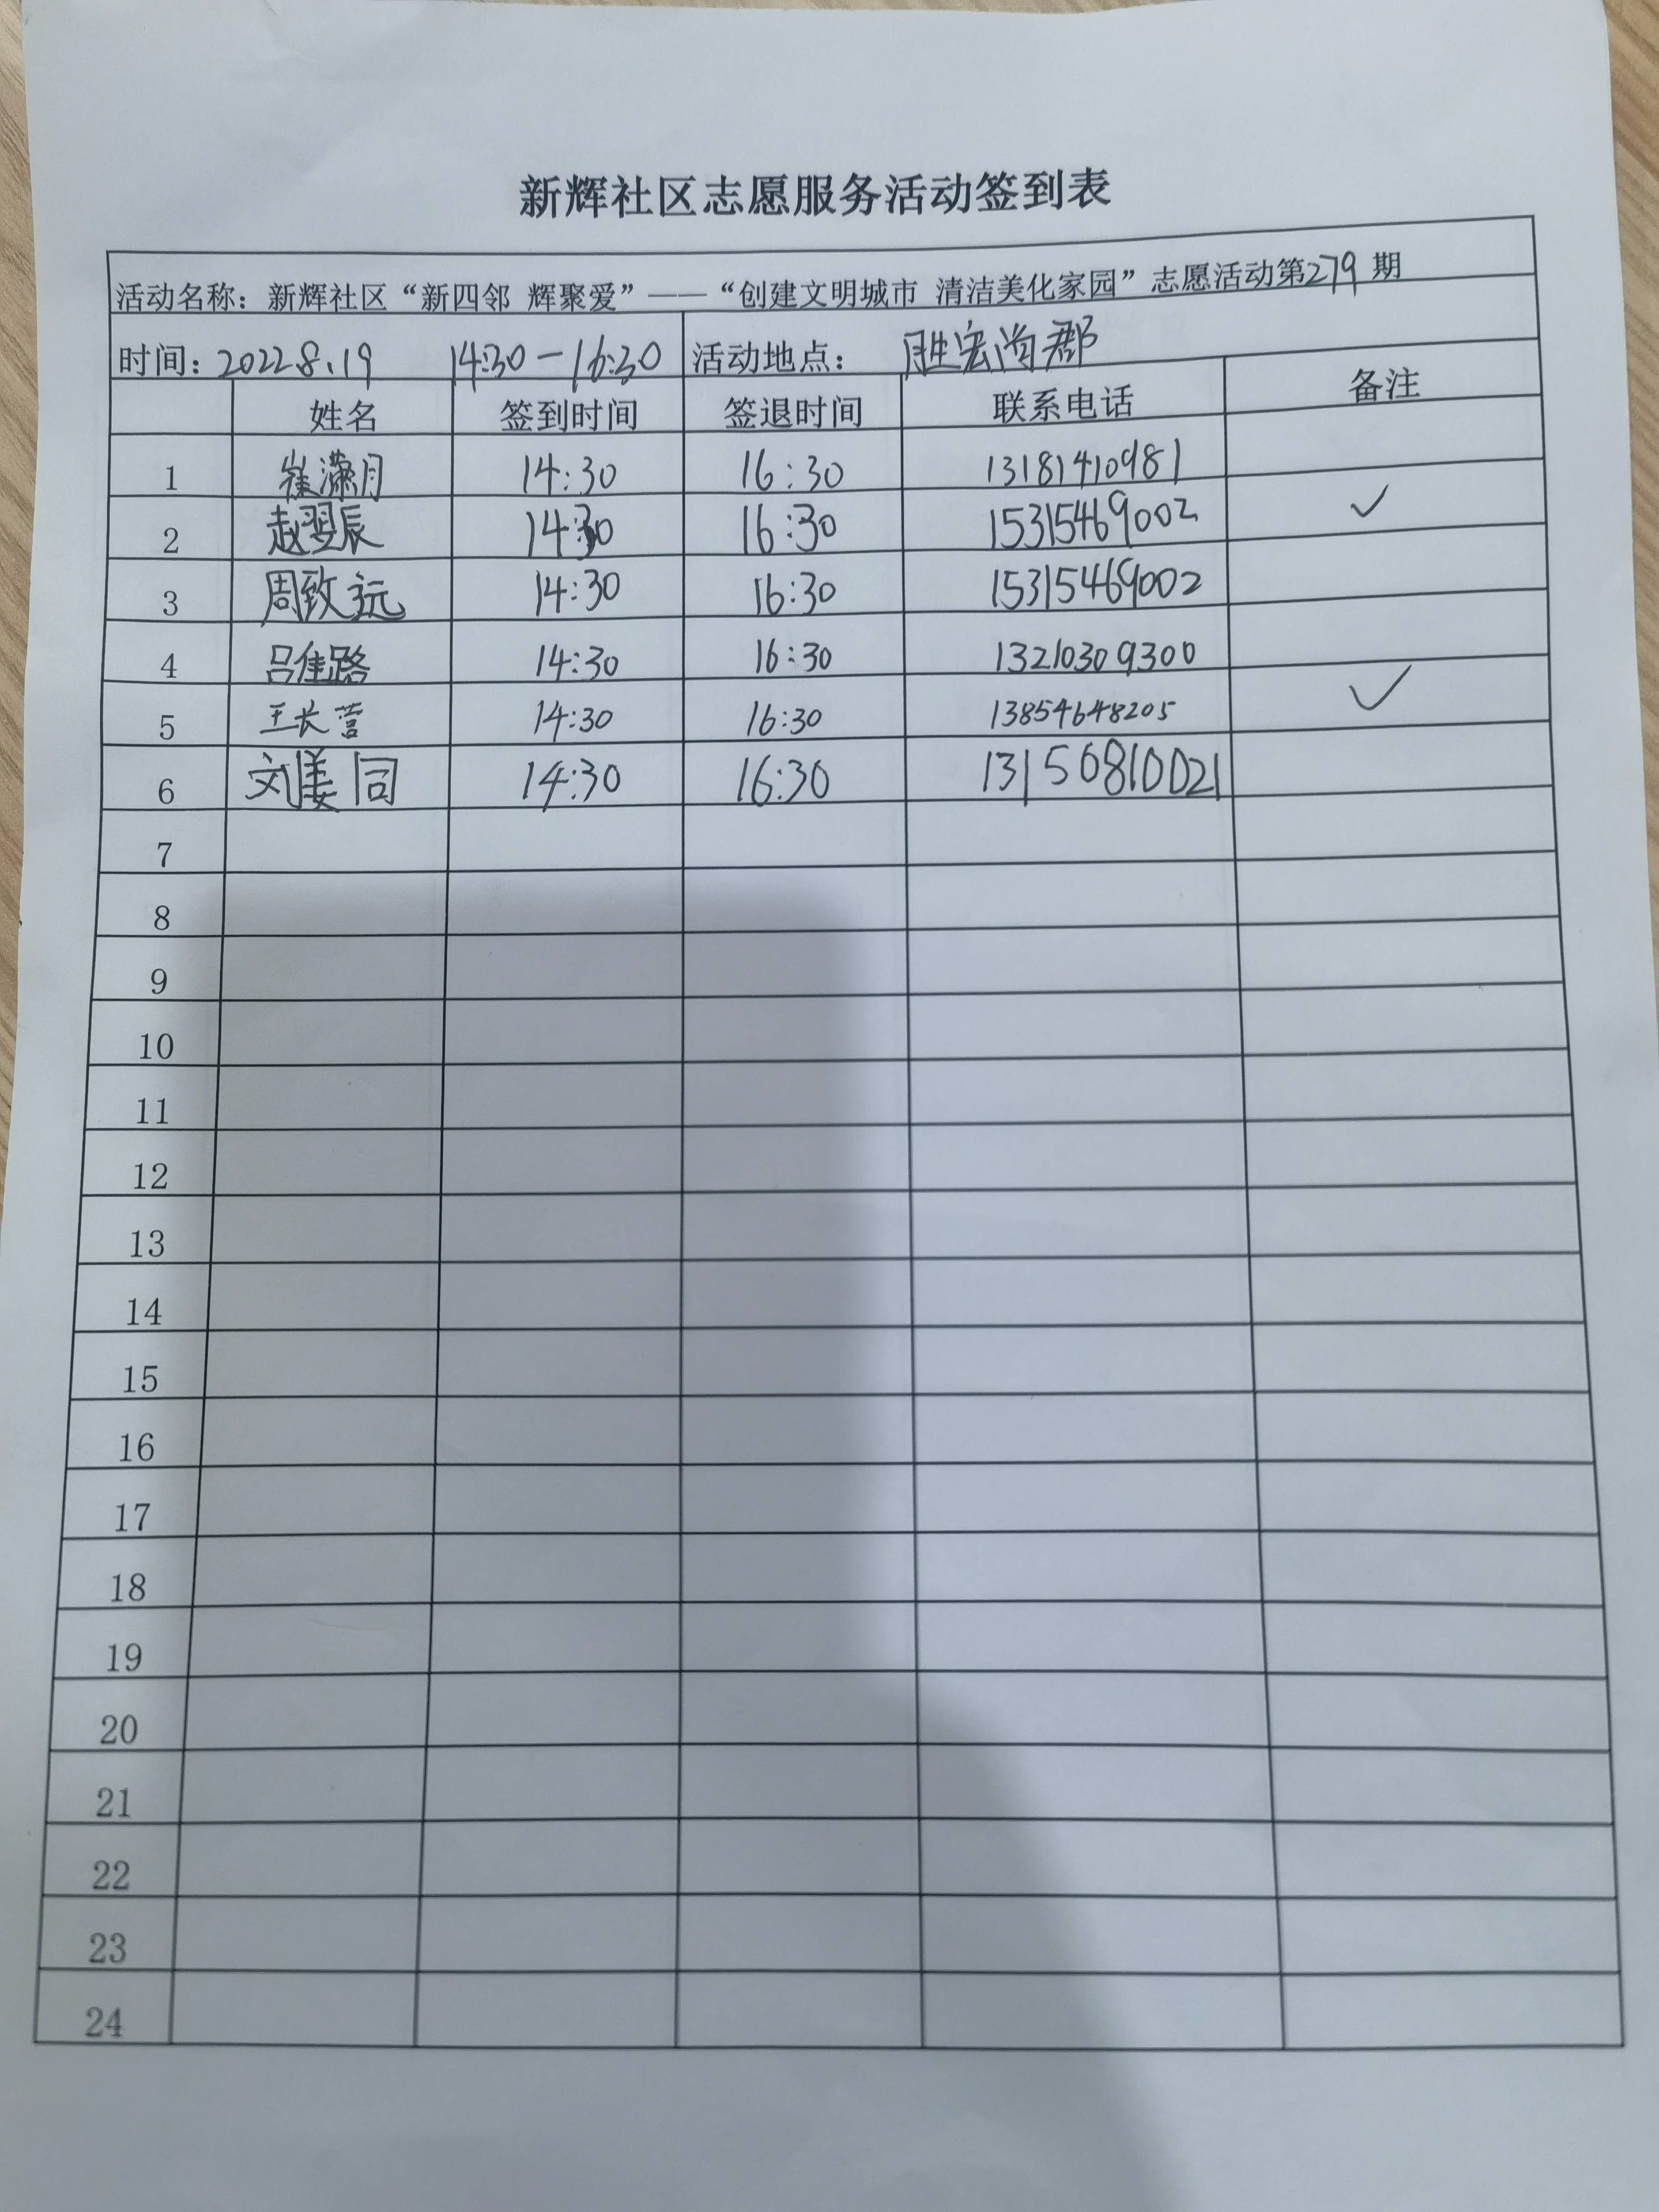 新辉社区志愿服务活动签到表
活动名称：新辉社区“新四邻 辉聚爱”——“创建文明城市 清洁美化家园”志愿活动第279期
时间：2022.8.19 14:30-16:30 活动地点：胜宏尚郡
姓名 签到时间 签退时间 联系电话 备注
1 崔潇月 14:30 16:30 13181410981
2 赵翌辰 14:30 16:30 15315469002 ✓
3 周致远 14:30 16:30 15315469002
4 吕佳路 14:30 16:30 13210309300
5 王长营 14:30 16:30 13854648205 ✓
6 刘姜同 14:30 16:30 13150810021
7
8
9
10
11
12
13
14
15
16
17
18
19
20
21
22
23
24